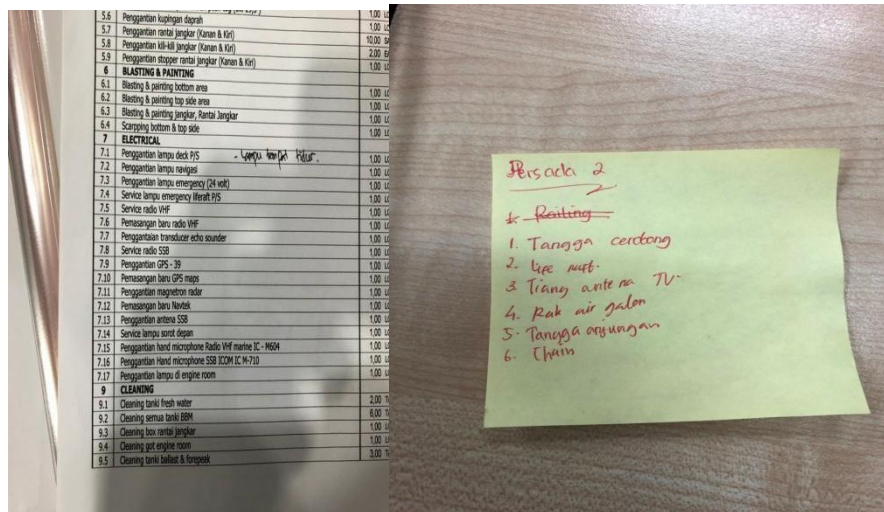 5.6 Penggantian kupingan daprah 1,00
5.7 Penggantian rantai jangkar (Kanan & Kiri) 10,00
5.8 Penggantian kili-kili jangkar (Kanan & Kiri) 2,00
5.9 Penggantian stopper rantai jangkar (Kanan & Kiri) 1,00
6 BLASTING & PAINTING
6.1 Blasting & painting bottom area 1,00
6.2 Blasting & painting top side area 1,00
6.3 Blasting & painting jangkar, Rantai Jangkar 1,00
6.4 Scarpping bottom & top side 1,00
7 ELECTRICAL
7.1 Penggantian lampu deck P/S - Lampu tempat tidur. 1,00
7.2 Penggantian lampu navigasi 1,00
7.3 Penggantian lampu emergency (24 volt) 1,00
7.4 Service lampu emergency liferaft P/S 1,00
7.5 Service radio VHF 1,00
7.6 Pemasangan baru radio VHF 1,00
7.7 Penggantaian transducer echo sounder 1,00
7.8 Service radio SSB 1,00
7.9 Penggantian GPS - 39 1,00
7.10 Pemasangan baru GPS maps 1,00
7.11 Penggantian magnetron radar 1,00
7.12 Pemasangan baru Navtek 1,00
7.13 Penggantian antena SSB 1,00
7.14 Service lampu sorot depan 1,00
7.15 Penggantian hand microphone Radio VHF marine IC - M604 1,00
7.16 Penggantian Hand microphone SSB ICOM IC M-710 1,00
7.17 Penggantian lampu di engine room 1,00
9 CLEANING
9.1 Cleaning tanki fresh water 2,00
9.2 Cleaning semua tanki BBM 6,00
9.3 Cleaning box rantai jangkar 1,00
9.4 Cleaning got engine room 1,00
9.5 Cleaning tanki ballast & forepeak 3,00
Persada 2
1. Railing
1. Tangga cerobong
2. Life raft.
3 Tiang antena TV.
4. Rak air galon
5. Tangga anjungan
6. Chain